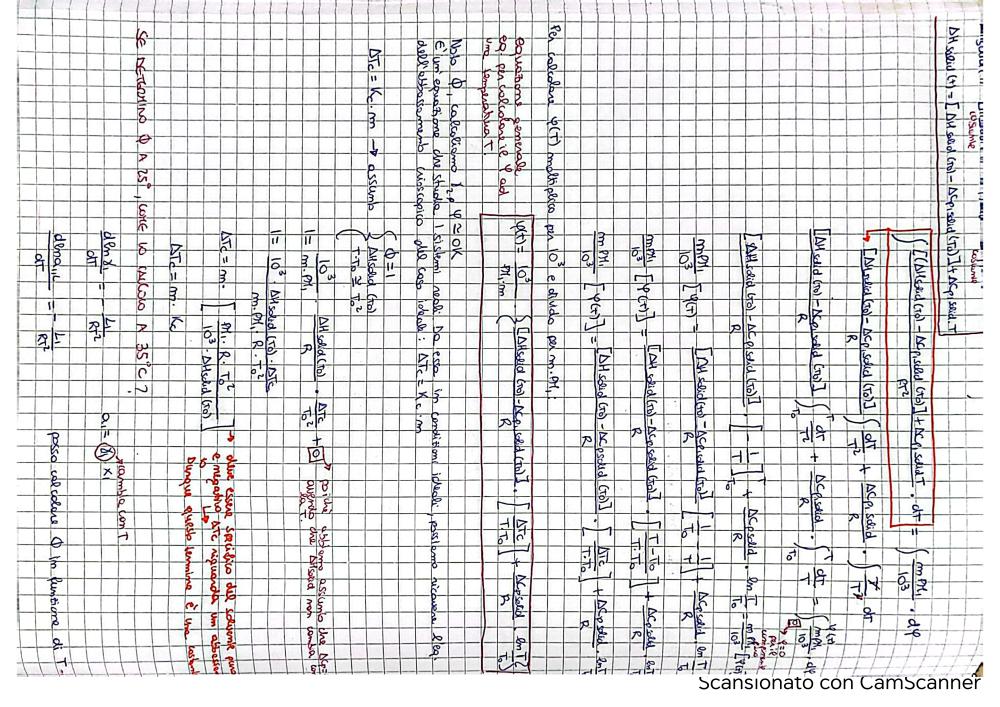 costante
costante
ΔHsolid (T) = [ΔHsolid (T0) - ΔCp,solid (T0)] + ΔCp,solid . T
∫ [ΔHsolid (T0) - ΔCp,solid (T0)] + ΔCp,solid T / RT² . dT = ∫ mPM1 / 10³ . dφ
[ΔHsolid (T0) - ΔCp,solid (T0)] / R ∫ dT / T² + ΔCp,solid / R . ∫ T / T² dT
[ΔHsolid (T0) - ΔCp,solid (T0)] / R ∫ T0 T dT / T² + ΔCp,solid / R . ∫ T0 T dT / T = ∫ 0 φ(T) mPM1 / 10³ . dφ
[ΔHsolid (T0) - ΔCp,solid (T0)] / R . [- 1 / T] T T0 + ΔCp,solid / R . ln T / T0 = m PM1 / 10³
m PM1 / 10³ [φ(T)] = [ΔHsolid (T0) - ΔCp,solid (T0)] / R [1 / T0 - 1 / T] + ΔCp,solid / R ln T
m PM1 / 10³ [φ(T)] = [ΔHsolid (T0) - ΔCp,solid (T0)] / R . [T - T0 / T . T0] + ΔCp,solid / R ln
m PM1 / 10³ [φ(T)] = [ΔHsolid (T0) - ΔCp,solid (T0)] / R . [ΔTc / T . T0] + ΔCp,solid / R . ln T
Per calcolare φ(T) moltiplico per 10³ e divido per m . PM1:
equazione generale
eq. per calcolare il φ ad
una temperatura T.
φ(T) = 10³ / PM1 . m { [ΔHsolid (T0) - ΔCp,solid (T0)] / R . [ΔTc / T . T0] + ΔCp,solid / R . ln T / T0 }
Noto φ, calcoliamo
È un'equazione che studia i sistemi reali. Da essa in condizioni ideali, possiamo ricavare l'eq.
dell'abbassamento crioscopico del caso ideale: ΔTc = Kc . m
ΔTc = Kc . m → assumo { φ = 1
ΔHsolid (T0)
T . T0 ≅ T0²
1 = 10³ / m . PM1 . ΔHsolid (T0) / R . ΔTc / T0² + 0 → poiché abbiamo assunto che ΔCp=
avendo che ΔHsolid non cambia con
la T.
1 = 10³ . ΔHsolid (T0) . ΔTc / m . PM1 . R . T0²
ΔTc = m . [PM1 . R . T0² / 10³ . ΔHsolid (T0)] → deve essere specifico del solvente puro
è negativo ΔTc riguarda un abbassa
Dunque questo termine è una costante
ΔTc = m . Kc
SE DETERMINO φ A 25°, COME LO CALCOLO A 35°C?
dlnγ1 / dT = - L1 / RT²
a1 = γ1 x1
cambia con T
dlna1 / dT = - L1 / RT²
posso calcolare φ in funzione di T
Scansionato con CamScanner